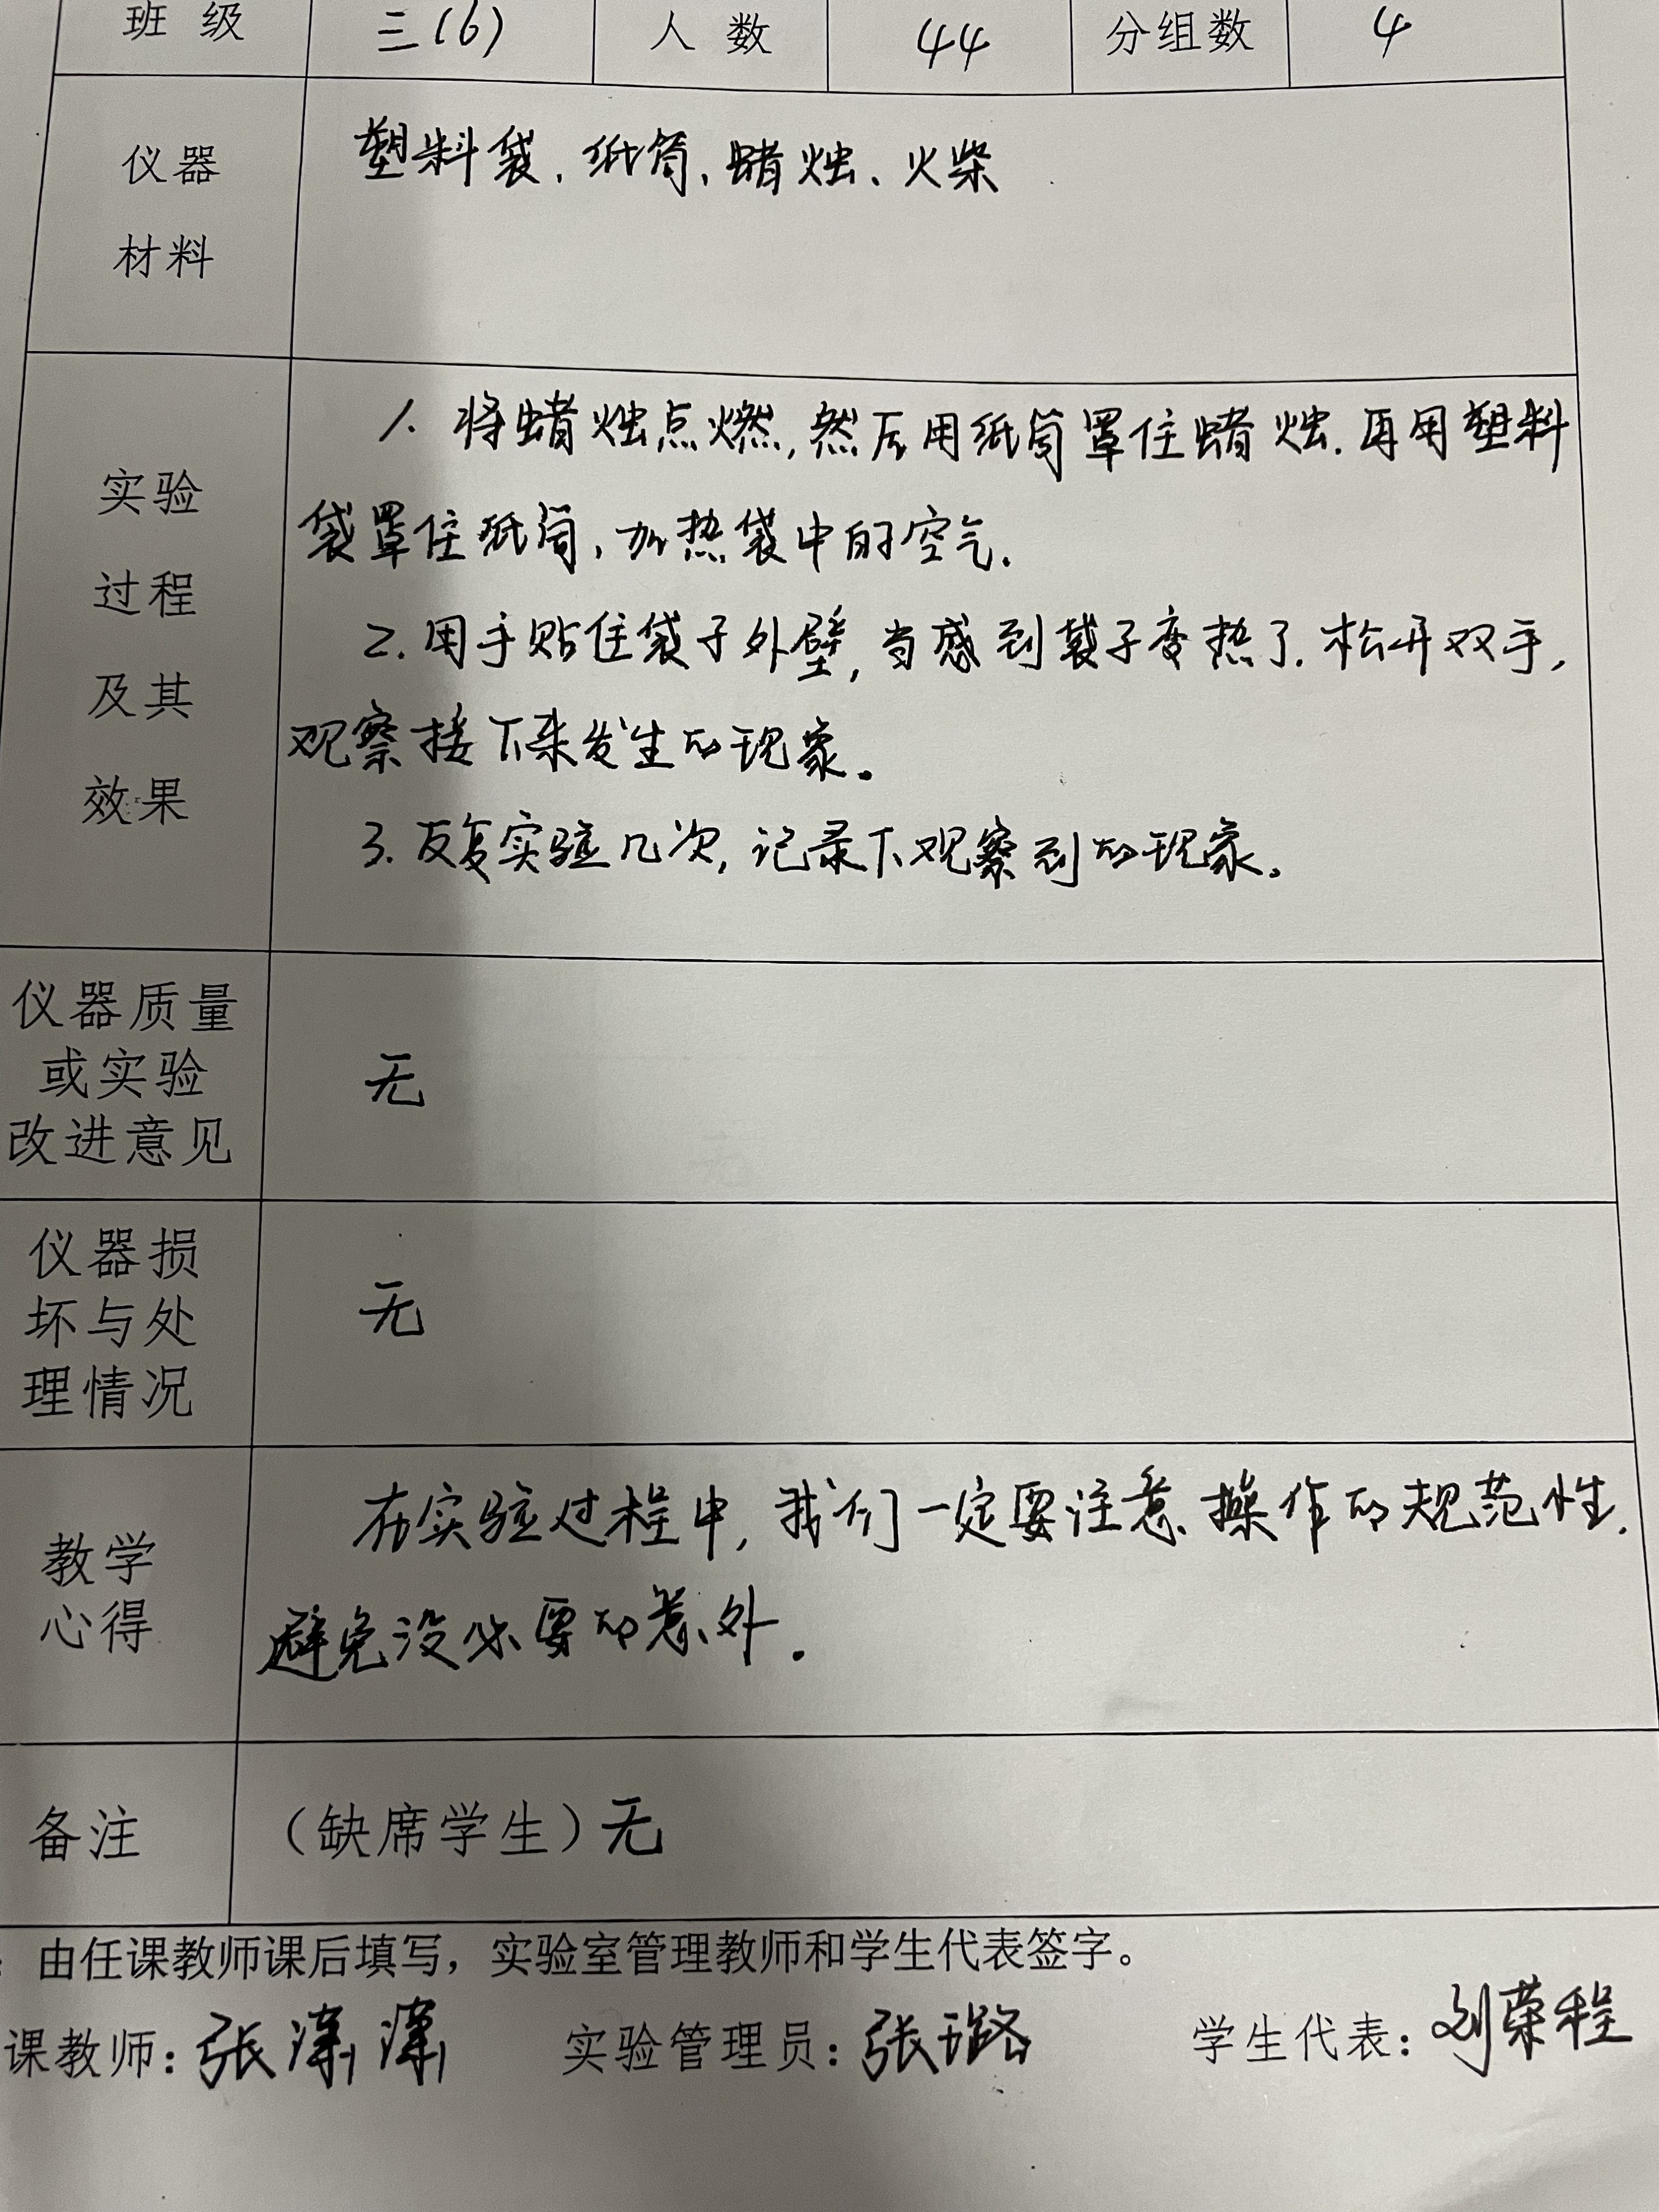 班 级 三(6) 人 数 44 分组数 4
仪器
材料
塑料袋、纸筒、蜡烛、火柴
实验
过程
及其
效果
1. 将蜡烛点燃,然后用纸筒罩住蜡烛.再用塑料
袋罩住纸筒,加热袋中的空气.
2. 用手贴住袋子外壁,当感到袋子变热了.松开双手,
观察接下来发生的现象。
3. 反复实验几次,记录下观察到的现象。
仪器质量
或实验
改进意见
无
仪器损
坏与处
理情况
无
教学
心得
在实验过程中,我们一定要注意操作的规范性.
避免没必要的意外.
备注
(缺席学生)无
由任课教师课后填写,实验室管理教师和学生代表签字。
课教师:张潇潇 实验管理员:张璐 学生代表:刘荣程